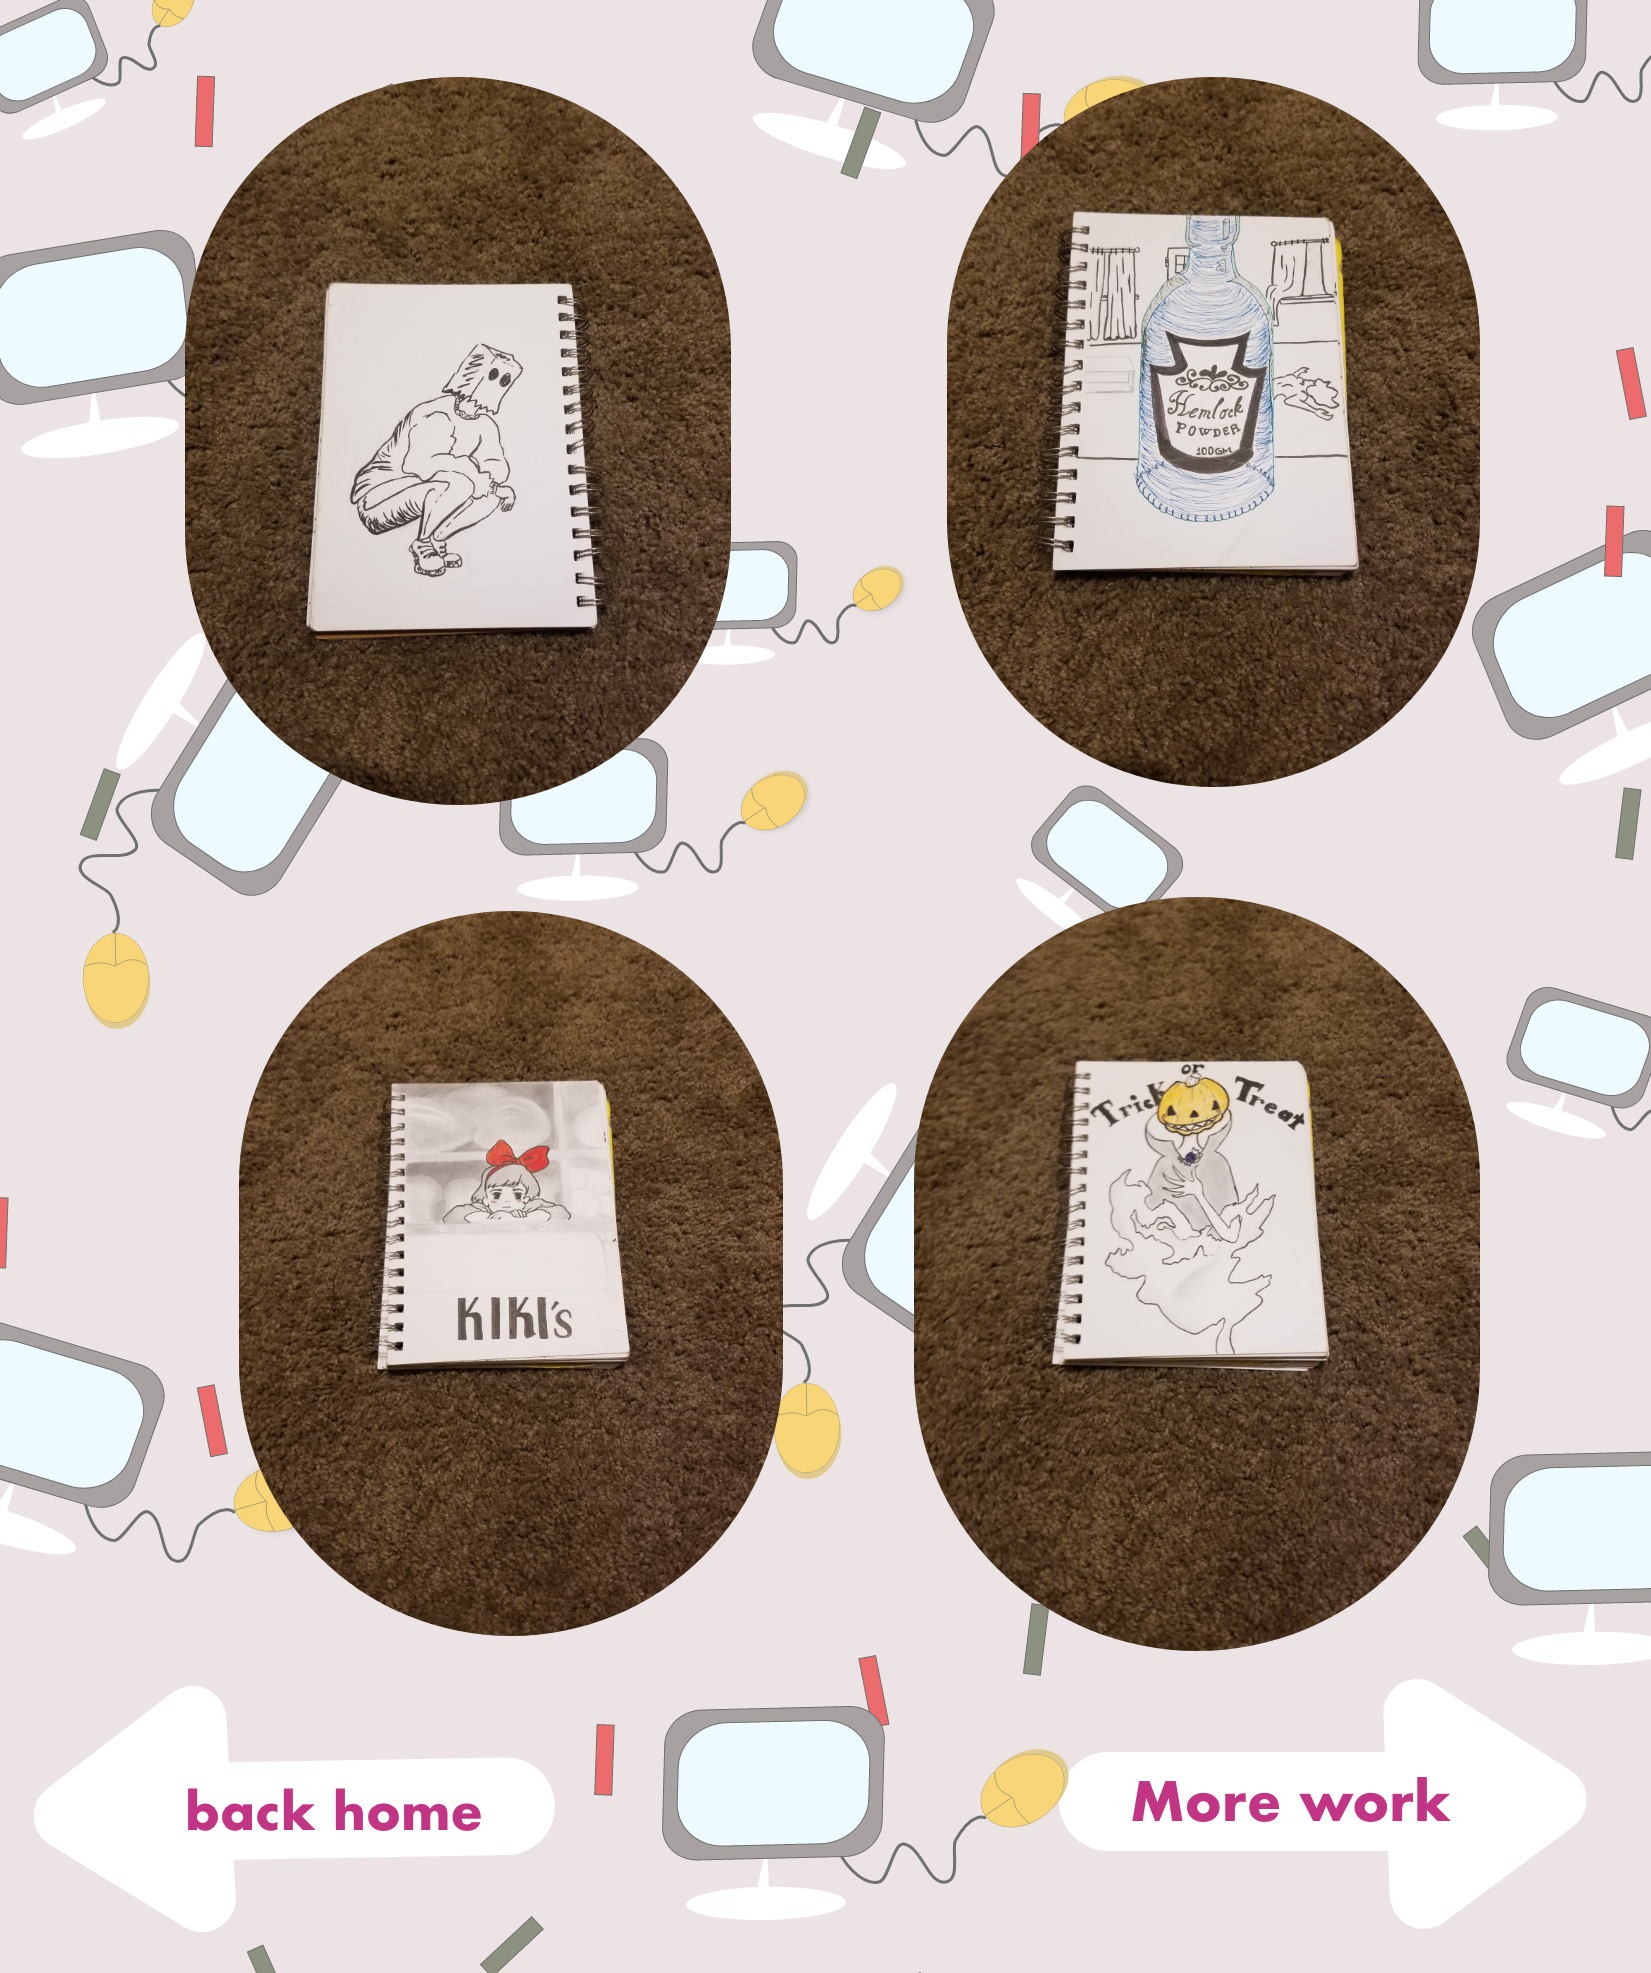 Hemlock
POWDER
100GM
KIKI's
Trick or Treat
back home
More work